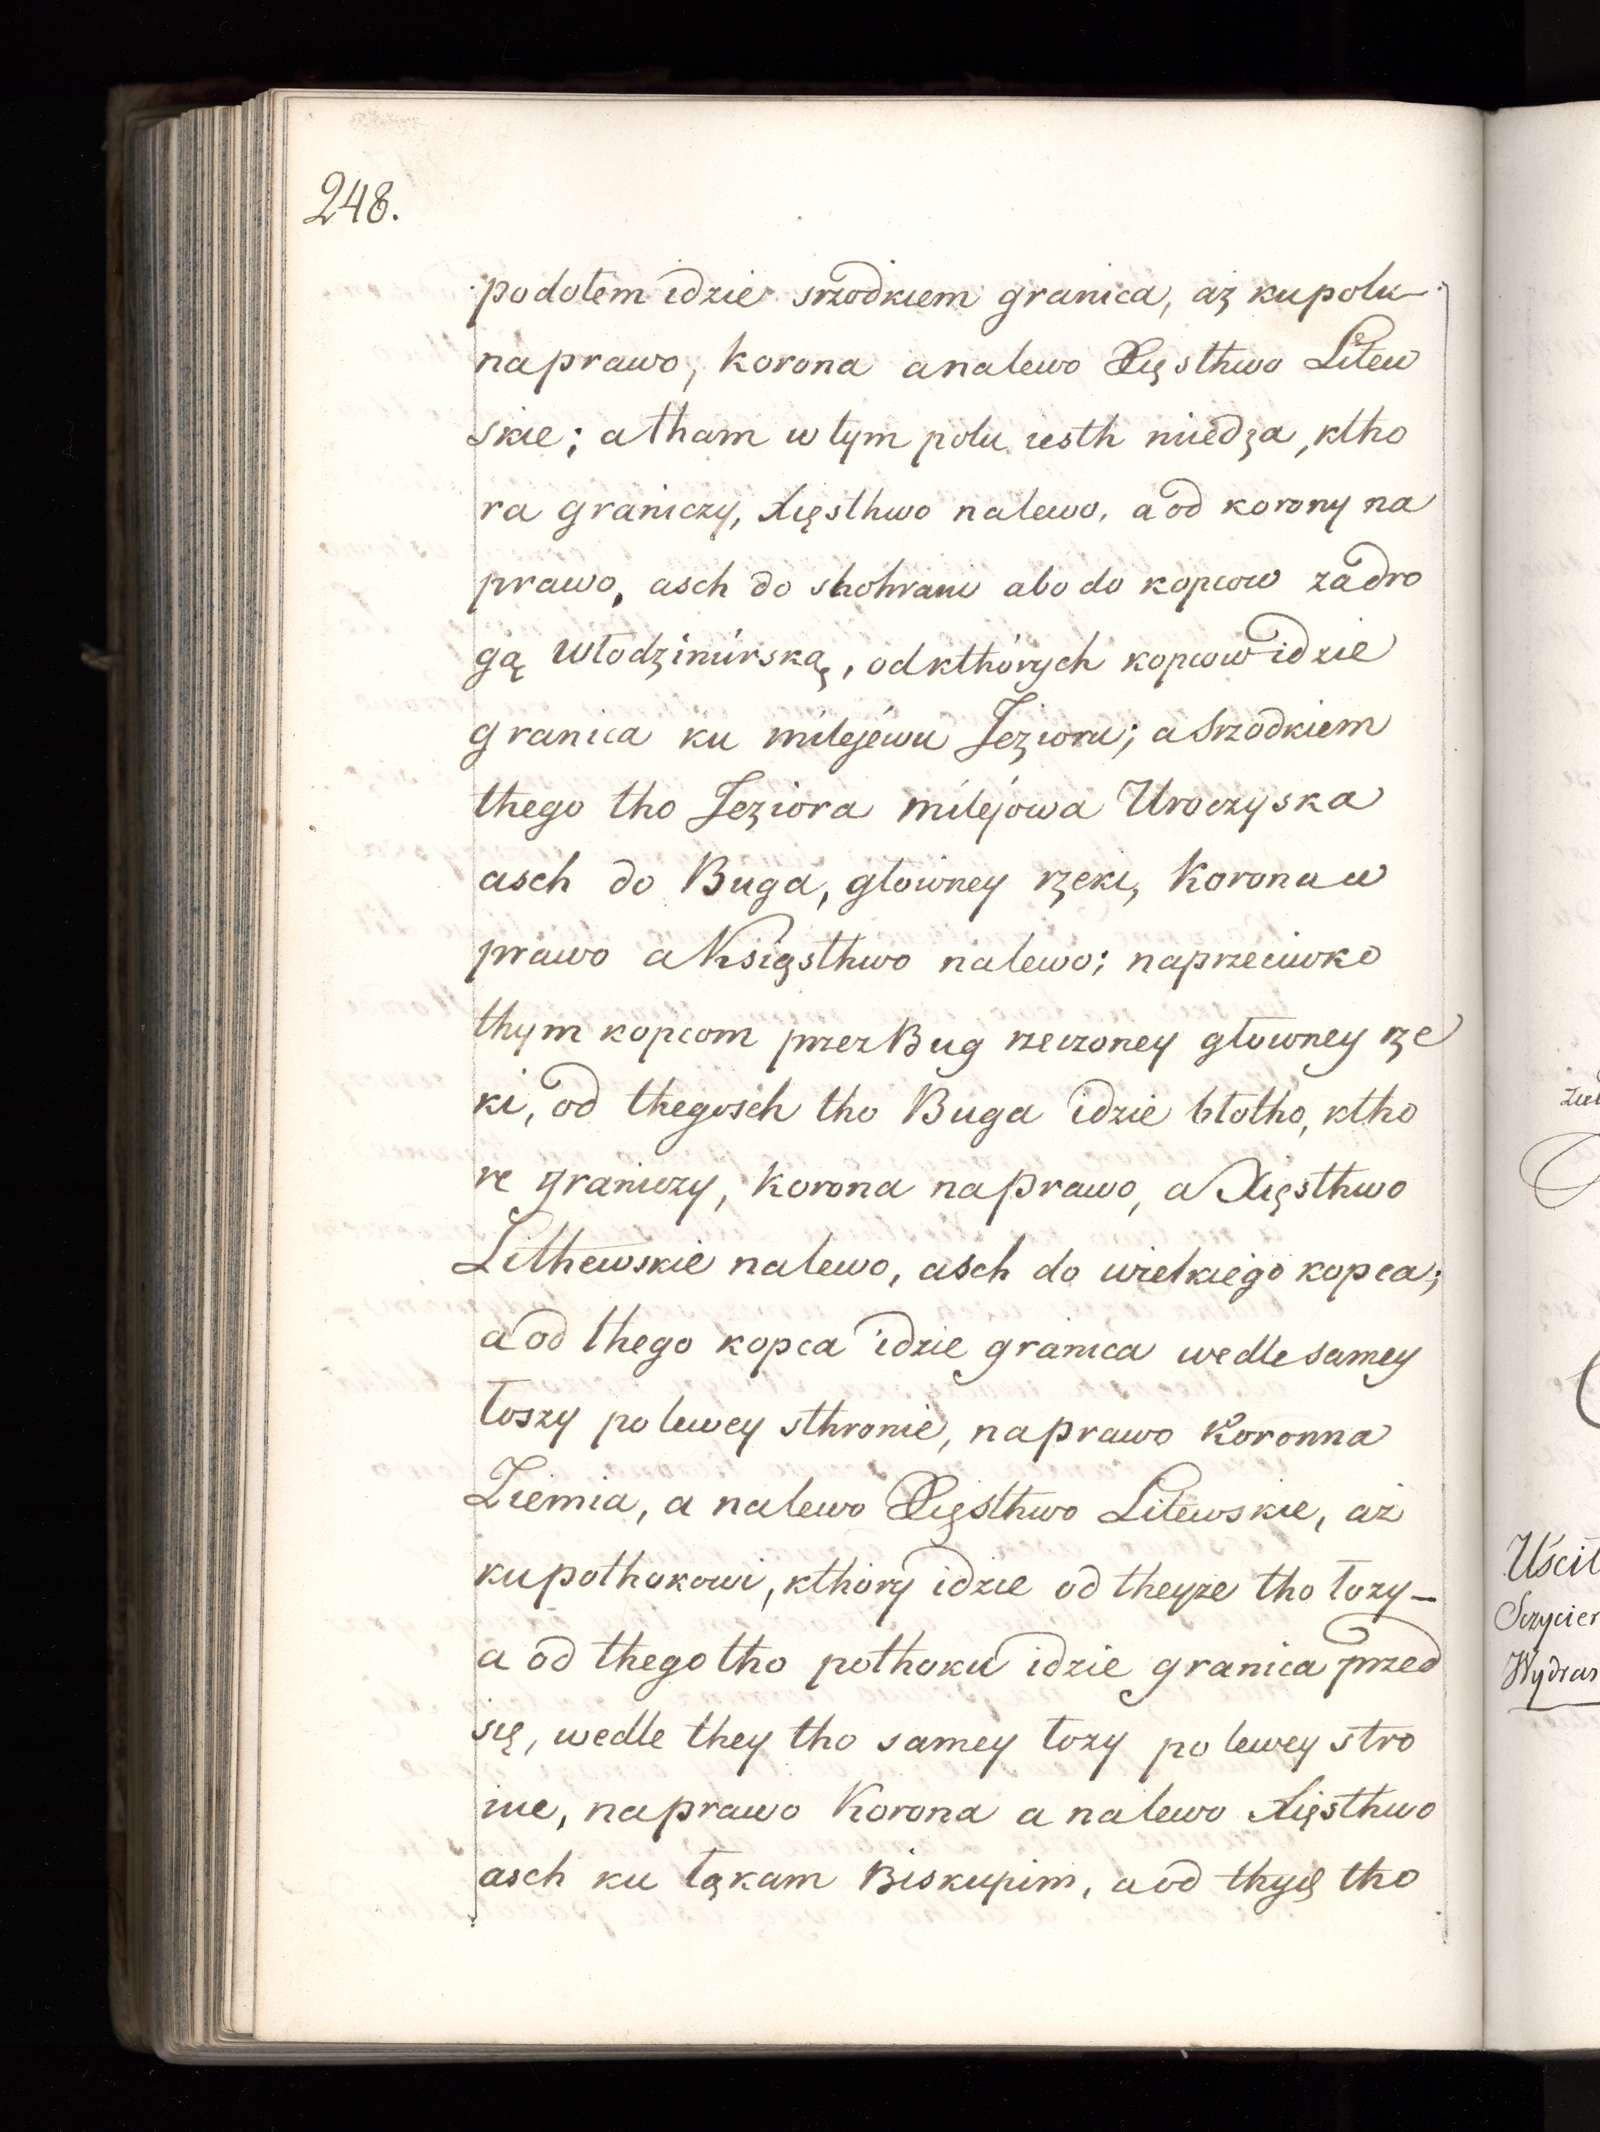 248.
podołem idzie srzodkiem granica, aż kupolu
naprawo, korona analewo Xięsthwo Litew
skie; atham wtym polu iesth miedza, ktho
ra graniczy, Xięsthwo nalewo, a od korony na
prawo, asch do skohranu abo do kopcow zadro
gą Włodzimirską, odkthórych kopcow idzie
granica ku milejéwu Jezioru; a srzodkiem
thego tho Jeziora milejówa Uroczyska
asch do Buga, główney rzeki, Korona w
prawo aKsięsthwo nalewo; naprzeciwko
thym kopcom przez Bug rzeczoney główney rze
ki, od thegosch tho Buga idzie błotho, ktho
re graniczy, korona naprawo, a Xięsthwo
Lithewskie nalewo, asch do wielkiégo kopca;
a od thego kopca idzie granica wedle samey
łoszy po lewey sthronie, naprawo Koronna
Ziemia, a nalewo Xięsthwo Litewskie, aż
kupothokowi, kthory idzie od theyże tho łozy –
a od thego tho pothoku idzie granica przed
się, wedle they tho samey łozy po lewey stro
nie, naprawo Korona a nalewo Xięsthwo
asch ku łąkam Biskupim, a od thyę tho
Uścił
Sczycier
Wydran